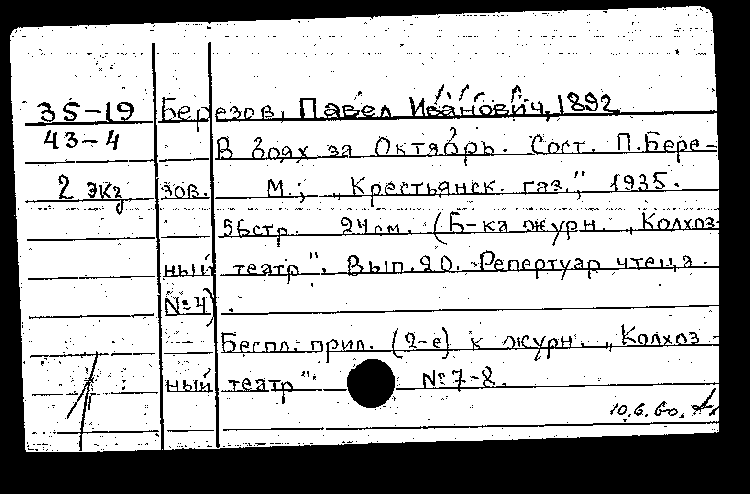 35-19 Березов, Павел Иванович, 1892
43-4 В боях за Октябрь. Сост. П.Бере-
2 экз зов. М.; „Крестьянск. газ.", 1935.
56стр. 24см. (Б-ка журн. „Колхоз-
ный театр". Вып.20. Репертуар чтеца.
№4).
Беспл. прил. (2-е) к журн. „Колхоз-
ный театр" №7-8.
10.6.60.